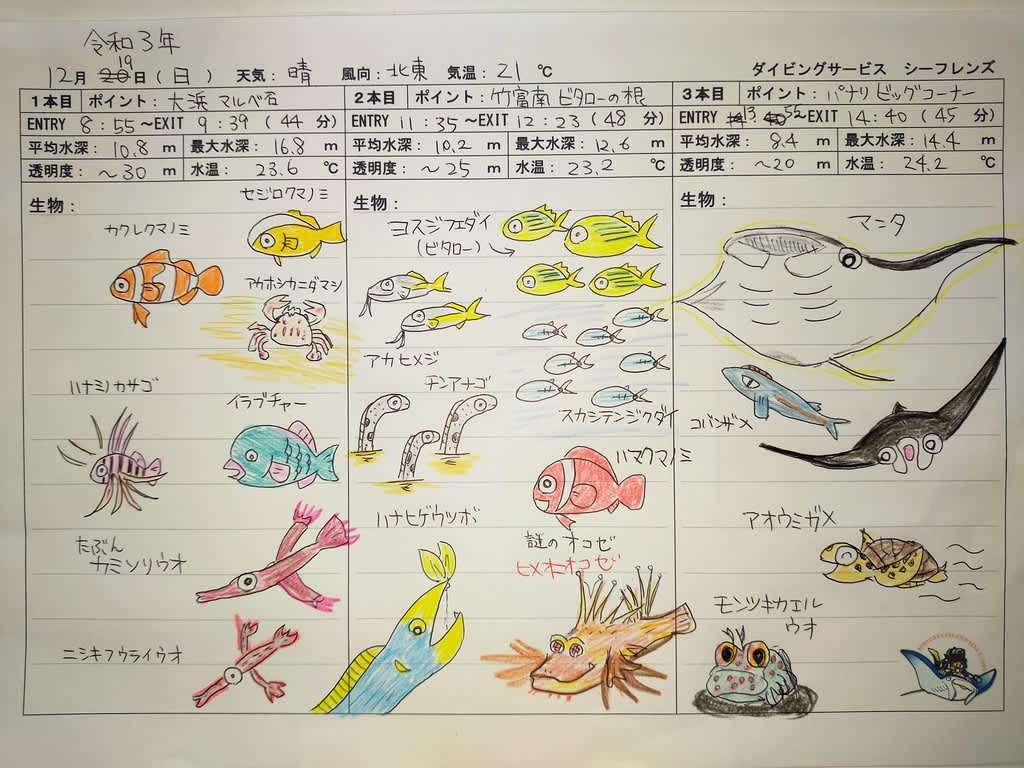 令和3年
12月19日(日) 天気:晴 風向:北東 気温:21℃ ダイビングサービス シーフレンズ
1本目 ポイント:大浜 マルベ石
ENTRY 8:55~EXIT 9:39 (44 分)
平均水深: 10.8 m 最大水深: 16.8 m
透明度: ~30 m 水温: 23.6 ℃
生物:
セジロクマノミ
カクレクマノミ
アカホシカニダマシ
ハナミノカサゴ
イラブチャー
たぶん
カミソリウオ
ニシキフウライウオ
2本目 ポイント:竹富南 ビタローの根
ENTRY 11:35~EXIT 12:23 (48 分)
平均水深: 10.2 m 最大水深: 12.6 m
透明度: ~25 m 水温: 23.2 ℃
生物:
ヨスジフエダイ
(ビタロー)→
アカヒメジ
チンアナゴ
スカシテンジクダイ
ハマクマノミ
ハナヒゲウツボ
謎のオコゼ
ヒメオニオコゼ
3本目 ポイント:パナリ ビッグコーナー
ENTRY 13:55~EXIT 14:40 (45 分)
平均水深: 8.4 m 最大水深: 14.4 m
透明度: ~20 m 水温: 24.2 ℃
生物:
マンタ
コバンザメ
アオウミガメ
モンツキカエル
ウオ